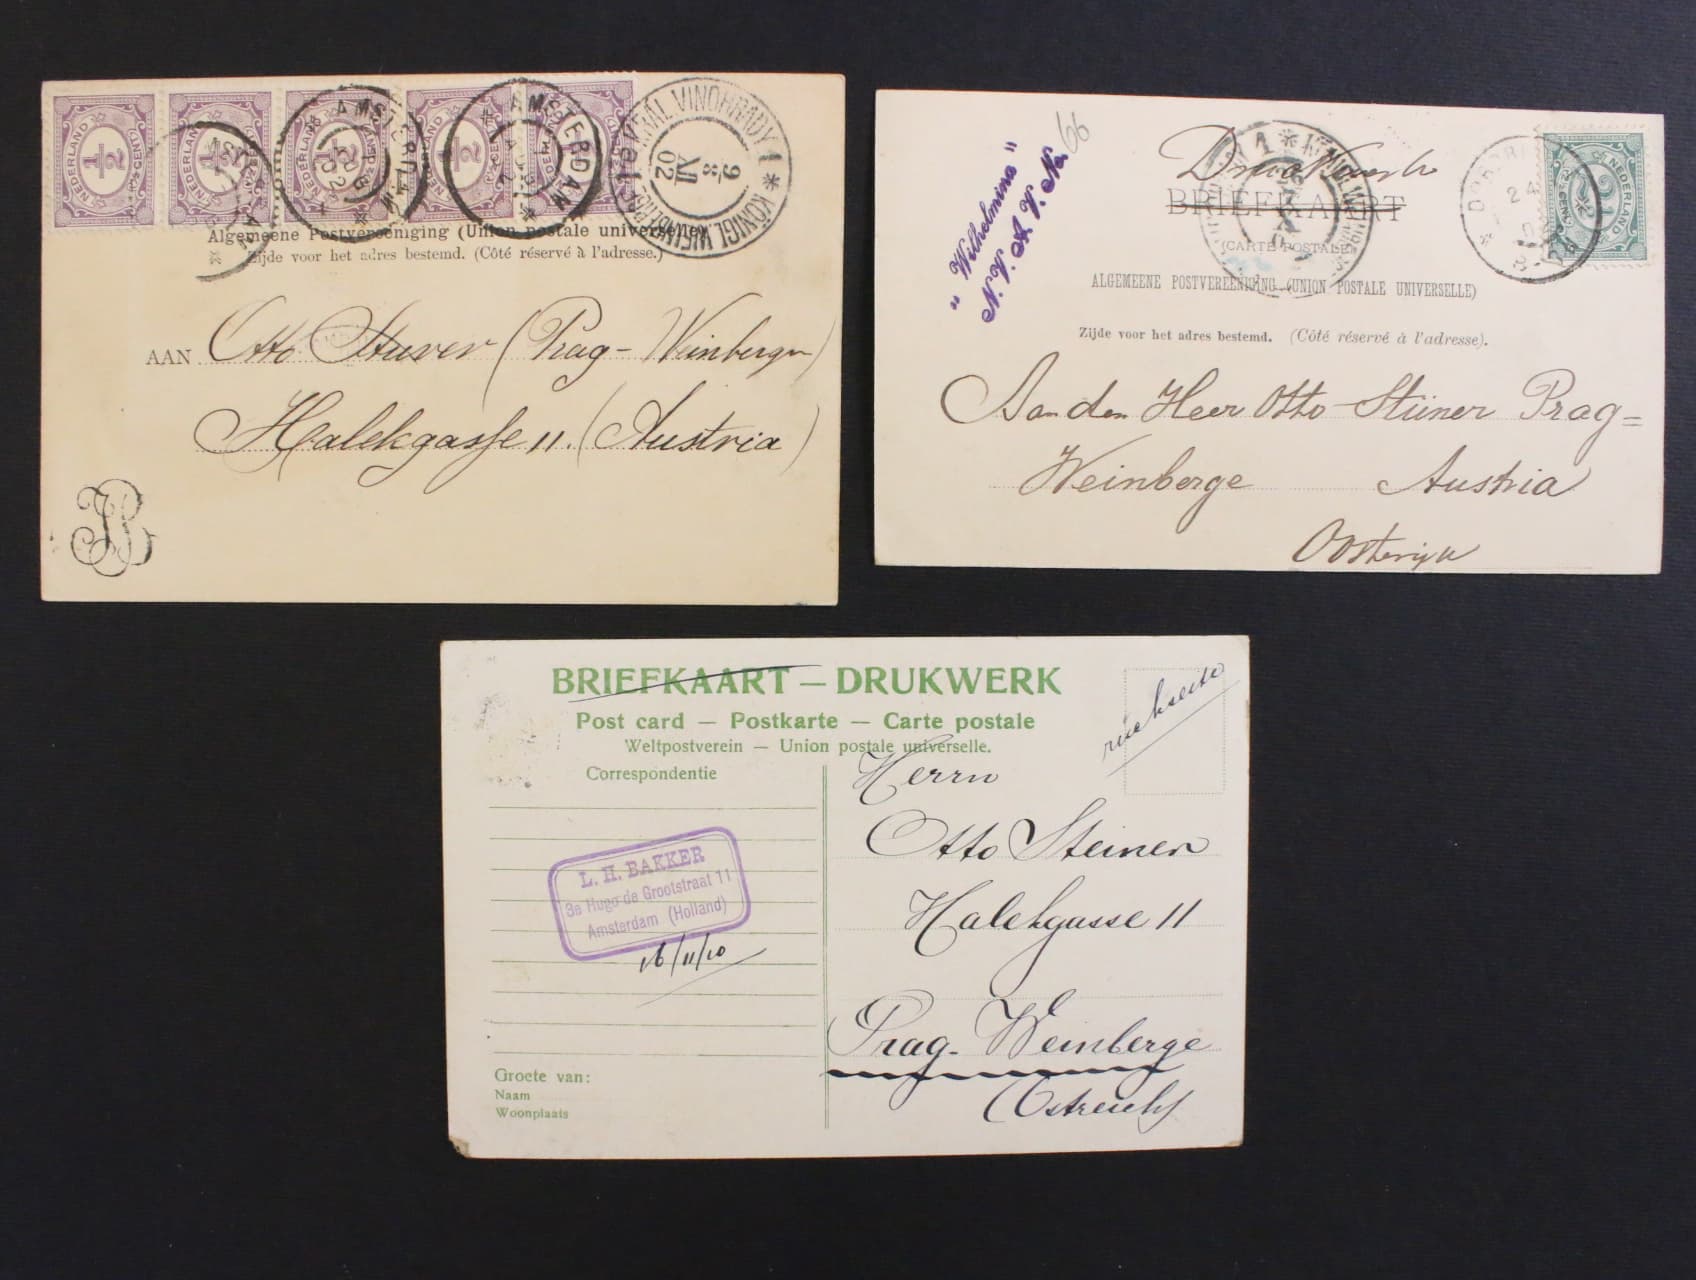 NEDERLAND
½
NEDERLAND
½
NEDERLAND
NEDERLAND
½
AMSTERDAM
AMSTERDAM
KRÁL. VINOHRADY 1 * KÖNIGL. WEINBERGE
9
8
XII
02
Algemeene Postvereeniging (Union postale universelle)
Zijde voor het adres bestemd. (Côté réservé à l'adresse.)
AAN Otto (Prag-Weinberge)
Halekgasse 11. (Austria)
JB
"Wilhelmina"
N. V. A. V. No. 66
BRIEFKAART
(CARTE POSTALE)
ALGEMEENE POSTVEREENIGING (UNION POSTALE UNIVERSELLE)
Zijde voor het adres bestemd. (Côté réservé à l'adresse).
NEDERLAND
2½
CENT
24
Aan den Heer Otto Steiner Prag=
Weinberge Austria
Oosterijk
BRIEFKAART — DRUKWERK
Post card — Postkarte — Carte postale
Weltpostverein — Union postale universelle.
Correspondentie
rückseite
L. H. BAKKER
3e Hugo de Grootstraat 11
Amsterdam (Holland)
16/11/10
Herrn
Otto Steiner
Halekgasse 11
Prag-Weinberge
Östreich
Groete van:
Naam
Woonplaats